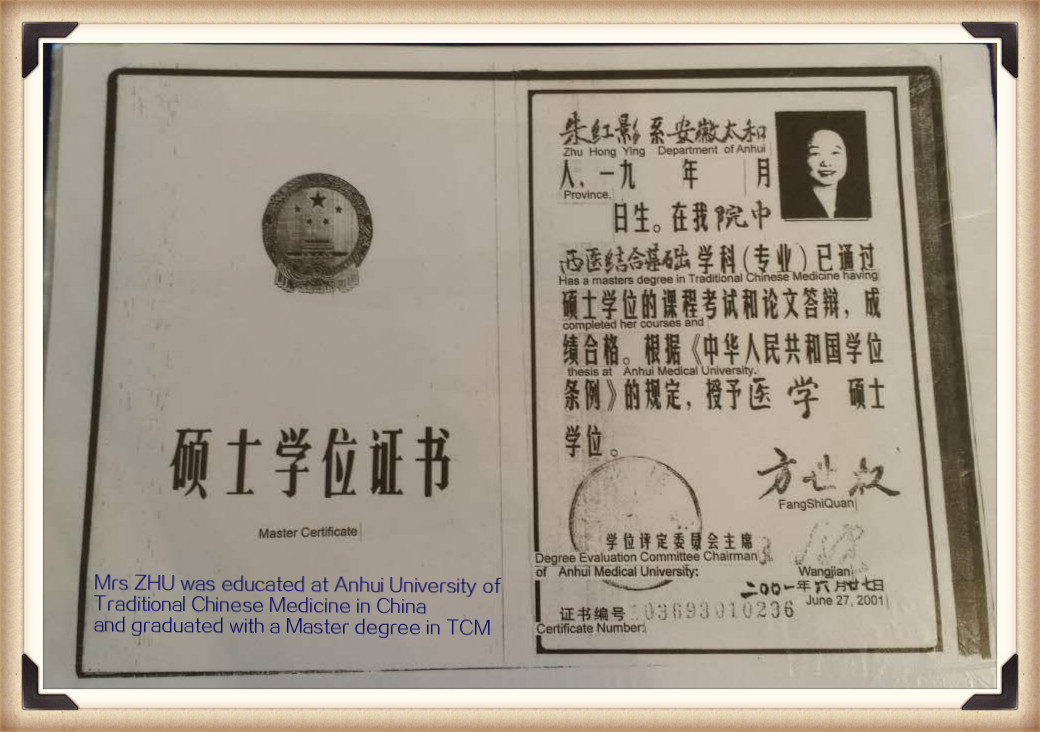 硕士学位证书
Master Certificate
Mrs ZHU was educated at Anhui University of
Traditional Chinese Medicine in China
and graduated with a Master degree in TCM
朱红影系安徽太和
Zhu Hong Ying Department of Anhui
人、一九 年 月
Province,
日生。在我院中
西医结合基础学科(专业)已通过
Has a masters degree in Traditional Chinese Medicine having
硕士学位的课程考试和论文答辩，成
completed her courses and
绩合格。根据《中华人民共和国学位
thesis at Anhui Medical University.
条例》的规定，授予医学 硕士
学位。
方世权
FangShiQuan
学位评定委员会主席
Degree Evaluation Committee Chairman
of Anhui Medical University:
Wangjian
二00一年六月廿七日
June 27, 2001
证书编号 03693010236
Certificate Number: